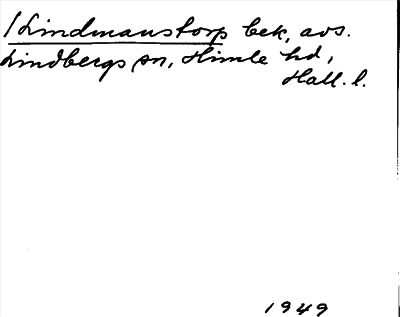 /Lindmanstorp bek, avs.
Lindbergs sn, Himle hd,
Hall. l.
1949